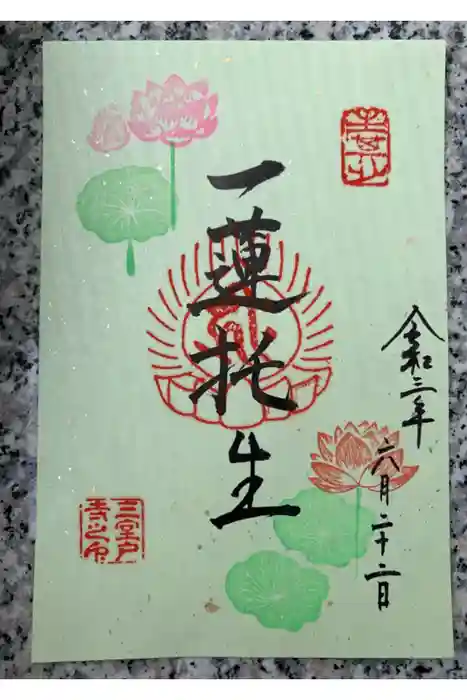 令和三年
六月二十二日
一蓮托生
三室戸
寺之印